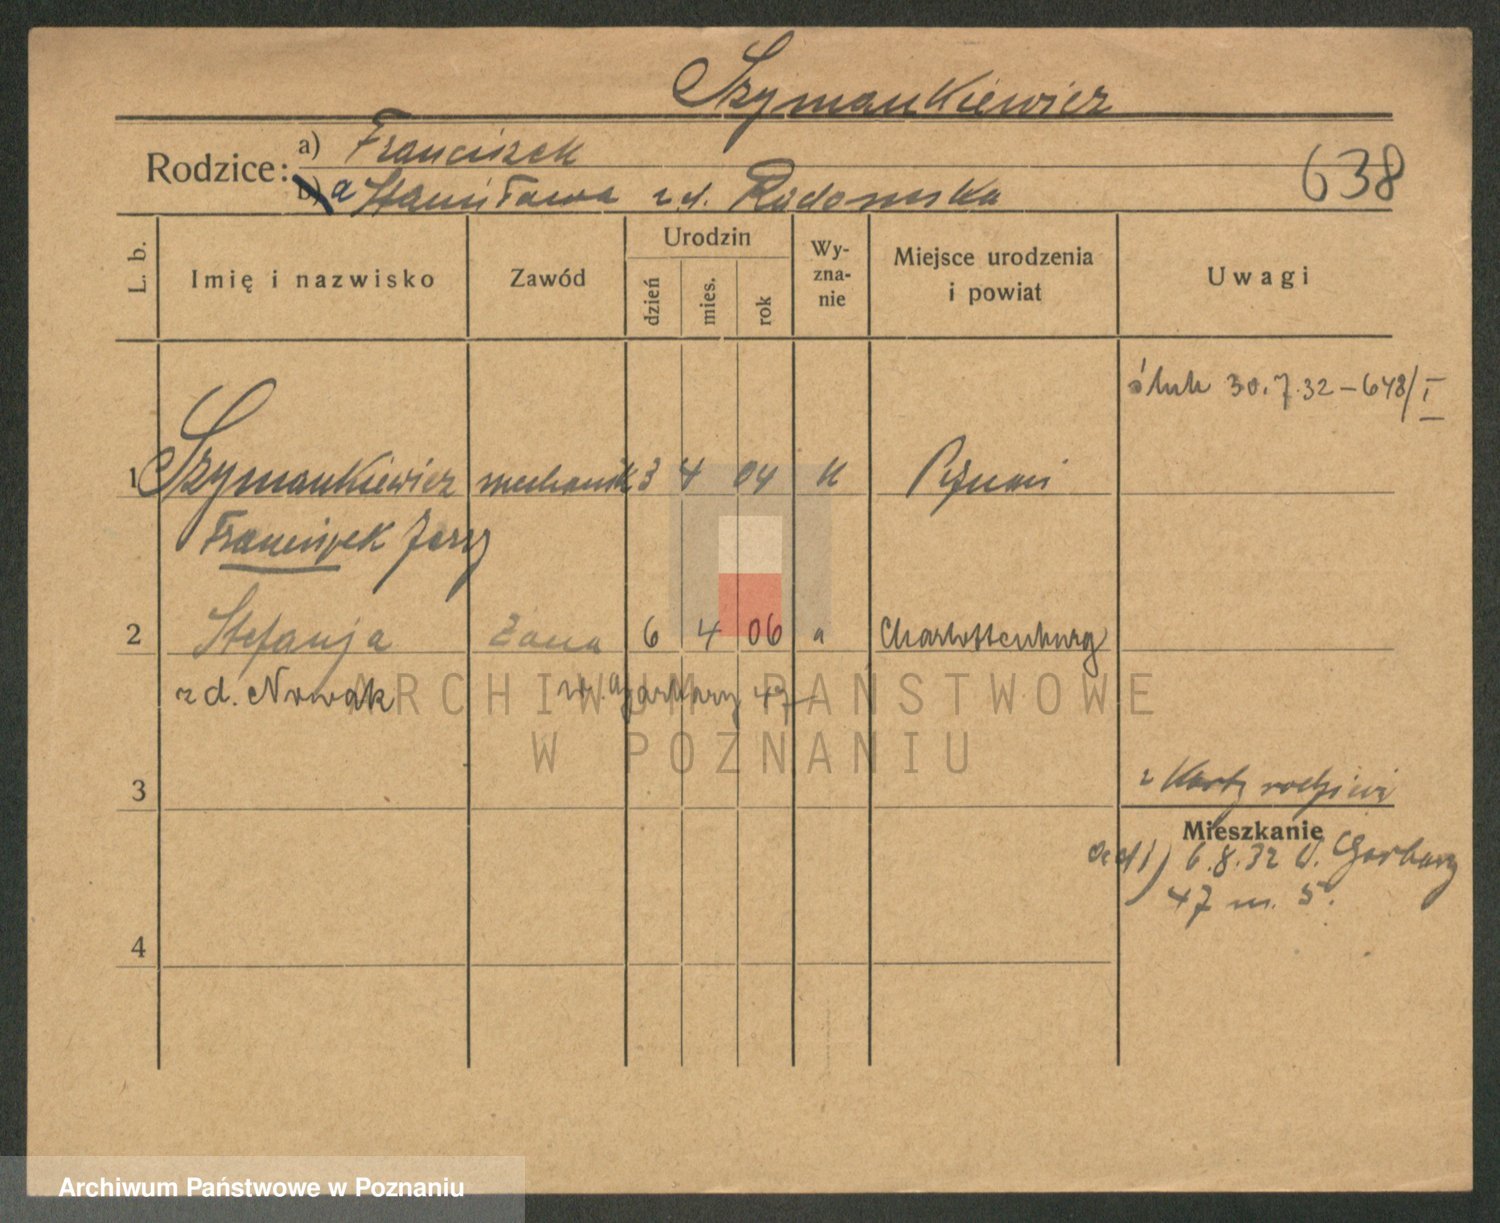 Szymankiewicz
Rodzice: a) Franciszek
b) a Stanisława z d. Radomska
638
L. b.
Imię i nazwisko
Zawód
Urodzin
dzień
mies.
rok
Wy-
zna-
nie
Miejsce urodzenia
i powiat
Uwagi
ślub 30.7.32 – 648/I
1 Szymankiewicz mechanik 3 4 04 K Poznań
Franciszek Jerzy
2 Stefanja żona 6 4 06 " Charlottenburg
z d. Nowak Garbary 47
ARCHIWUM PAŃSTWOWE
W POZNANIU
3
z Karty rodziców
Mieszkanie
od 1) 6.8.32 U. Garbary
47 m. 5.
4
Archiwum Państwowe w Poznaniu